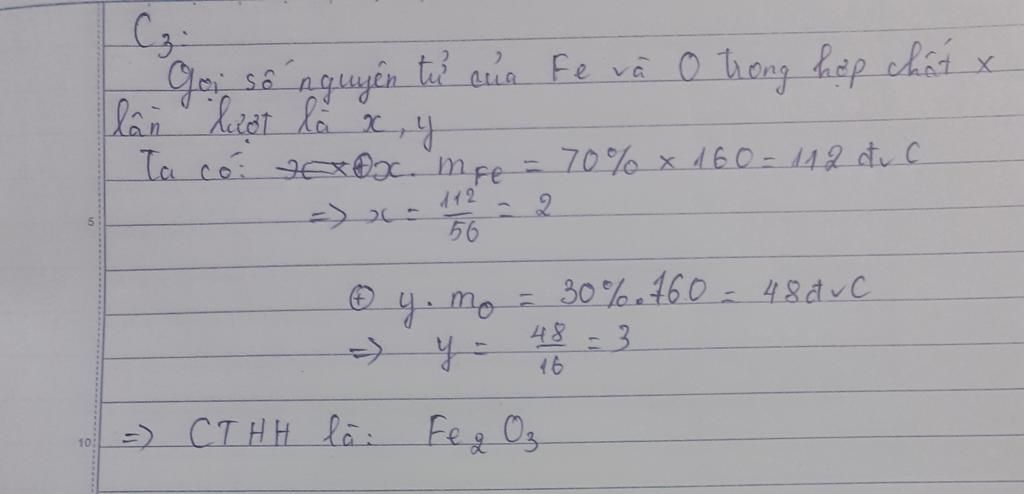 C3:
Gọi số nguyên tử của Fe và O trong hợp chất x
lần lượt là x, y
Ta có: ⊕x. mFe = 70% x 160 = 112 đvC
=> x = 112/56 = 2
5
⊕ y. mO = 30%.160 = 48đvC
=> y = 48/16 = 3
10
=> CTHH là: Fe2O3